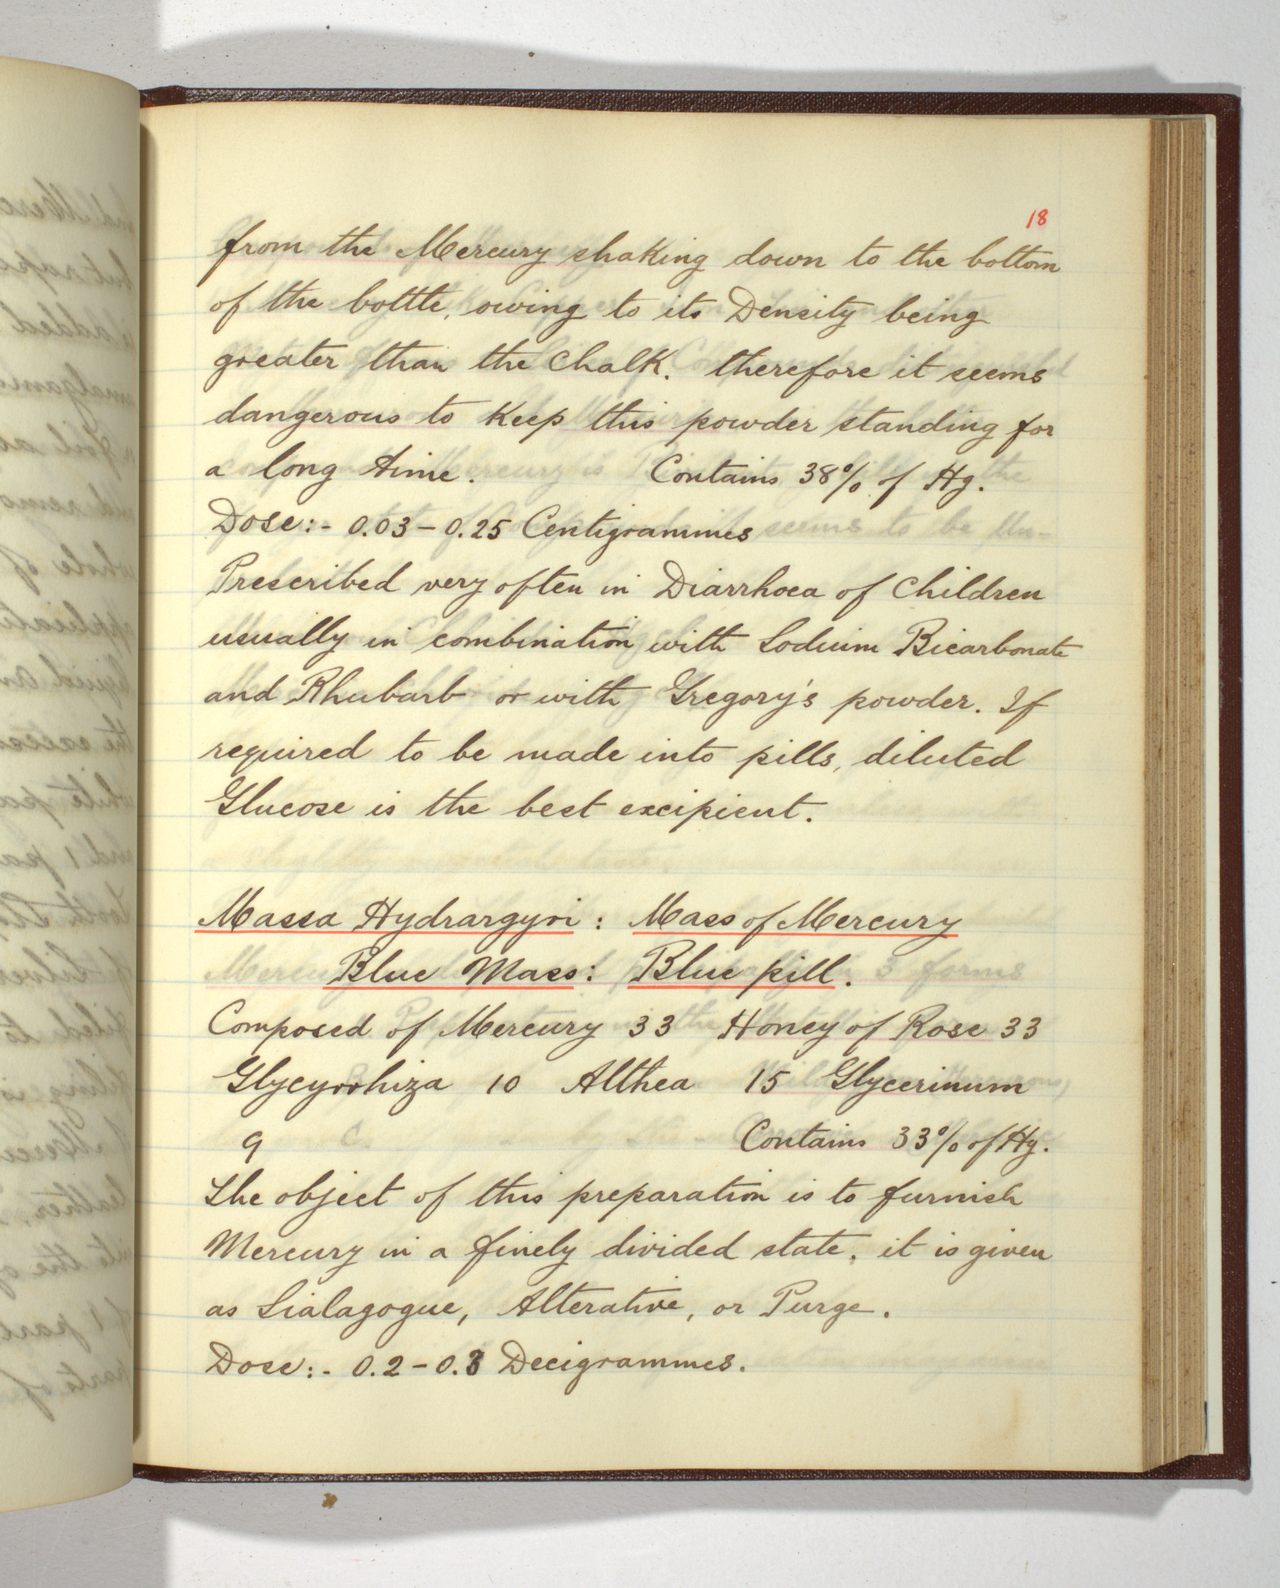 18
from the Mercury shaking down to the bottom
of the bottle, owing to its Density being
greater than the Chalk. therefore it seems
dangerous to Keep this powder standing for
a long time. Contains 38% of Hg.
Dose:- 0.03 - 0.25 Centigrammes
Prescribed very often in Diarrhoea of Children
usually in combination with Sodium Bicarbonate
and Rhubarb or with Gregory's powder. If
required to be made into pills, diluted
Glucose is the best excipient.
Massa Hydrargyri : Mass of Mercury
Blue Mass: Blue pill.
Composed of Mercury 33 Honey of Rose 33
Glycyrrhiza 10 Althea 15 Glycerinum
9 Contains 33% of Hg.
The object of this preparation is to furnish
Mercury in a finely divided state. it is given
as Sialagogue, Alterative, or Purge.
Dose:- 0.2 - 0.3 Decigrammes.